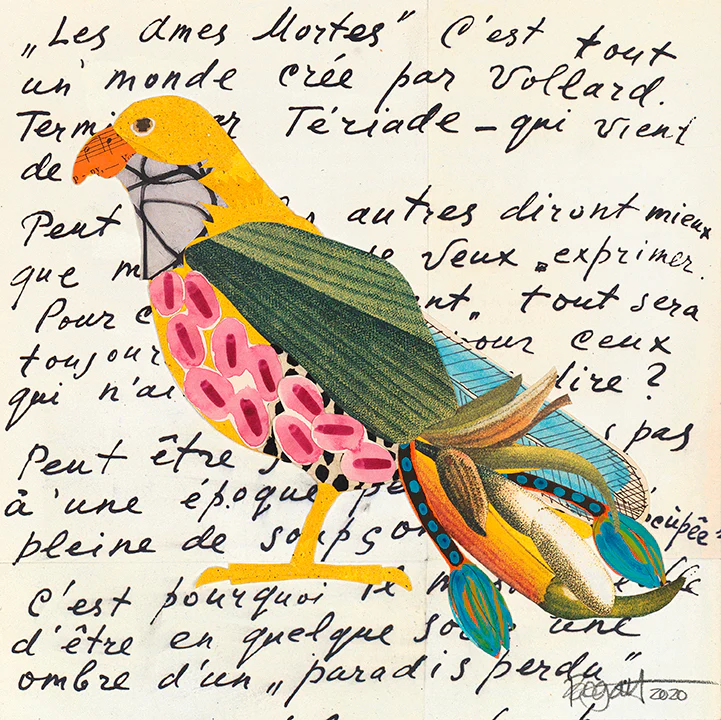 „Les Ames Mortes" C'est tout
un monde crée par Vollard.
Termi er Tériade – qui vient
de
Peut autres diront mieux
que m veux „exprimer.
Pour c ent„ tout sera
toujour pour ceux
qui n'a dire ?
Peut être pas
à une époque pe
pleine de soupço cupée
C'est pourquoi il m
d'être en quelque so une
ombre d'un „paradis perdu"
2020